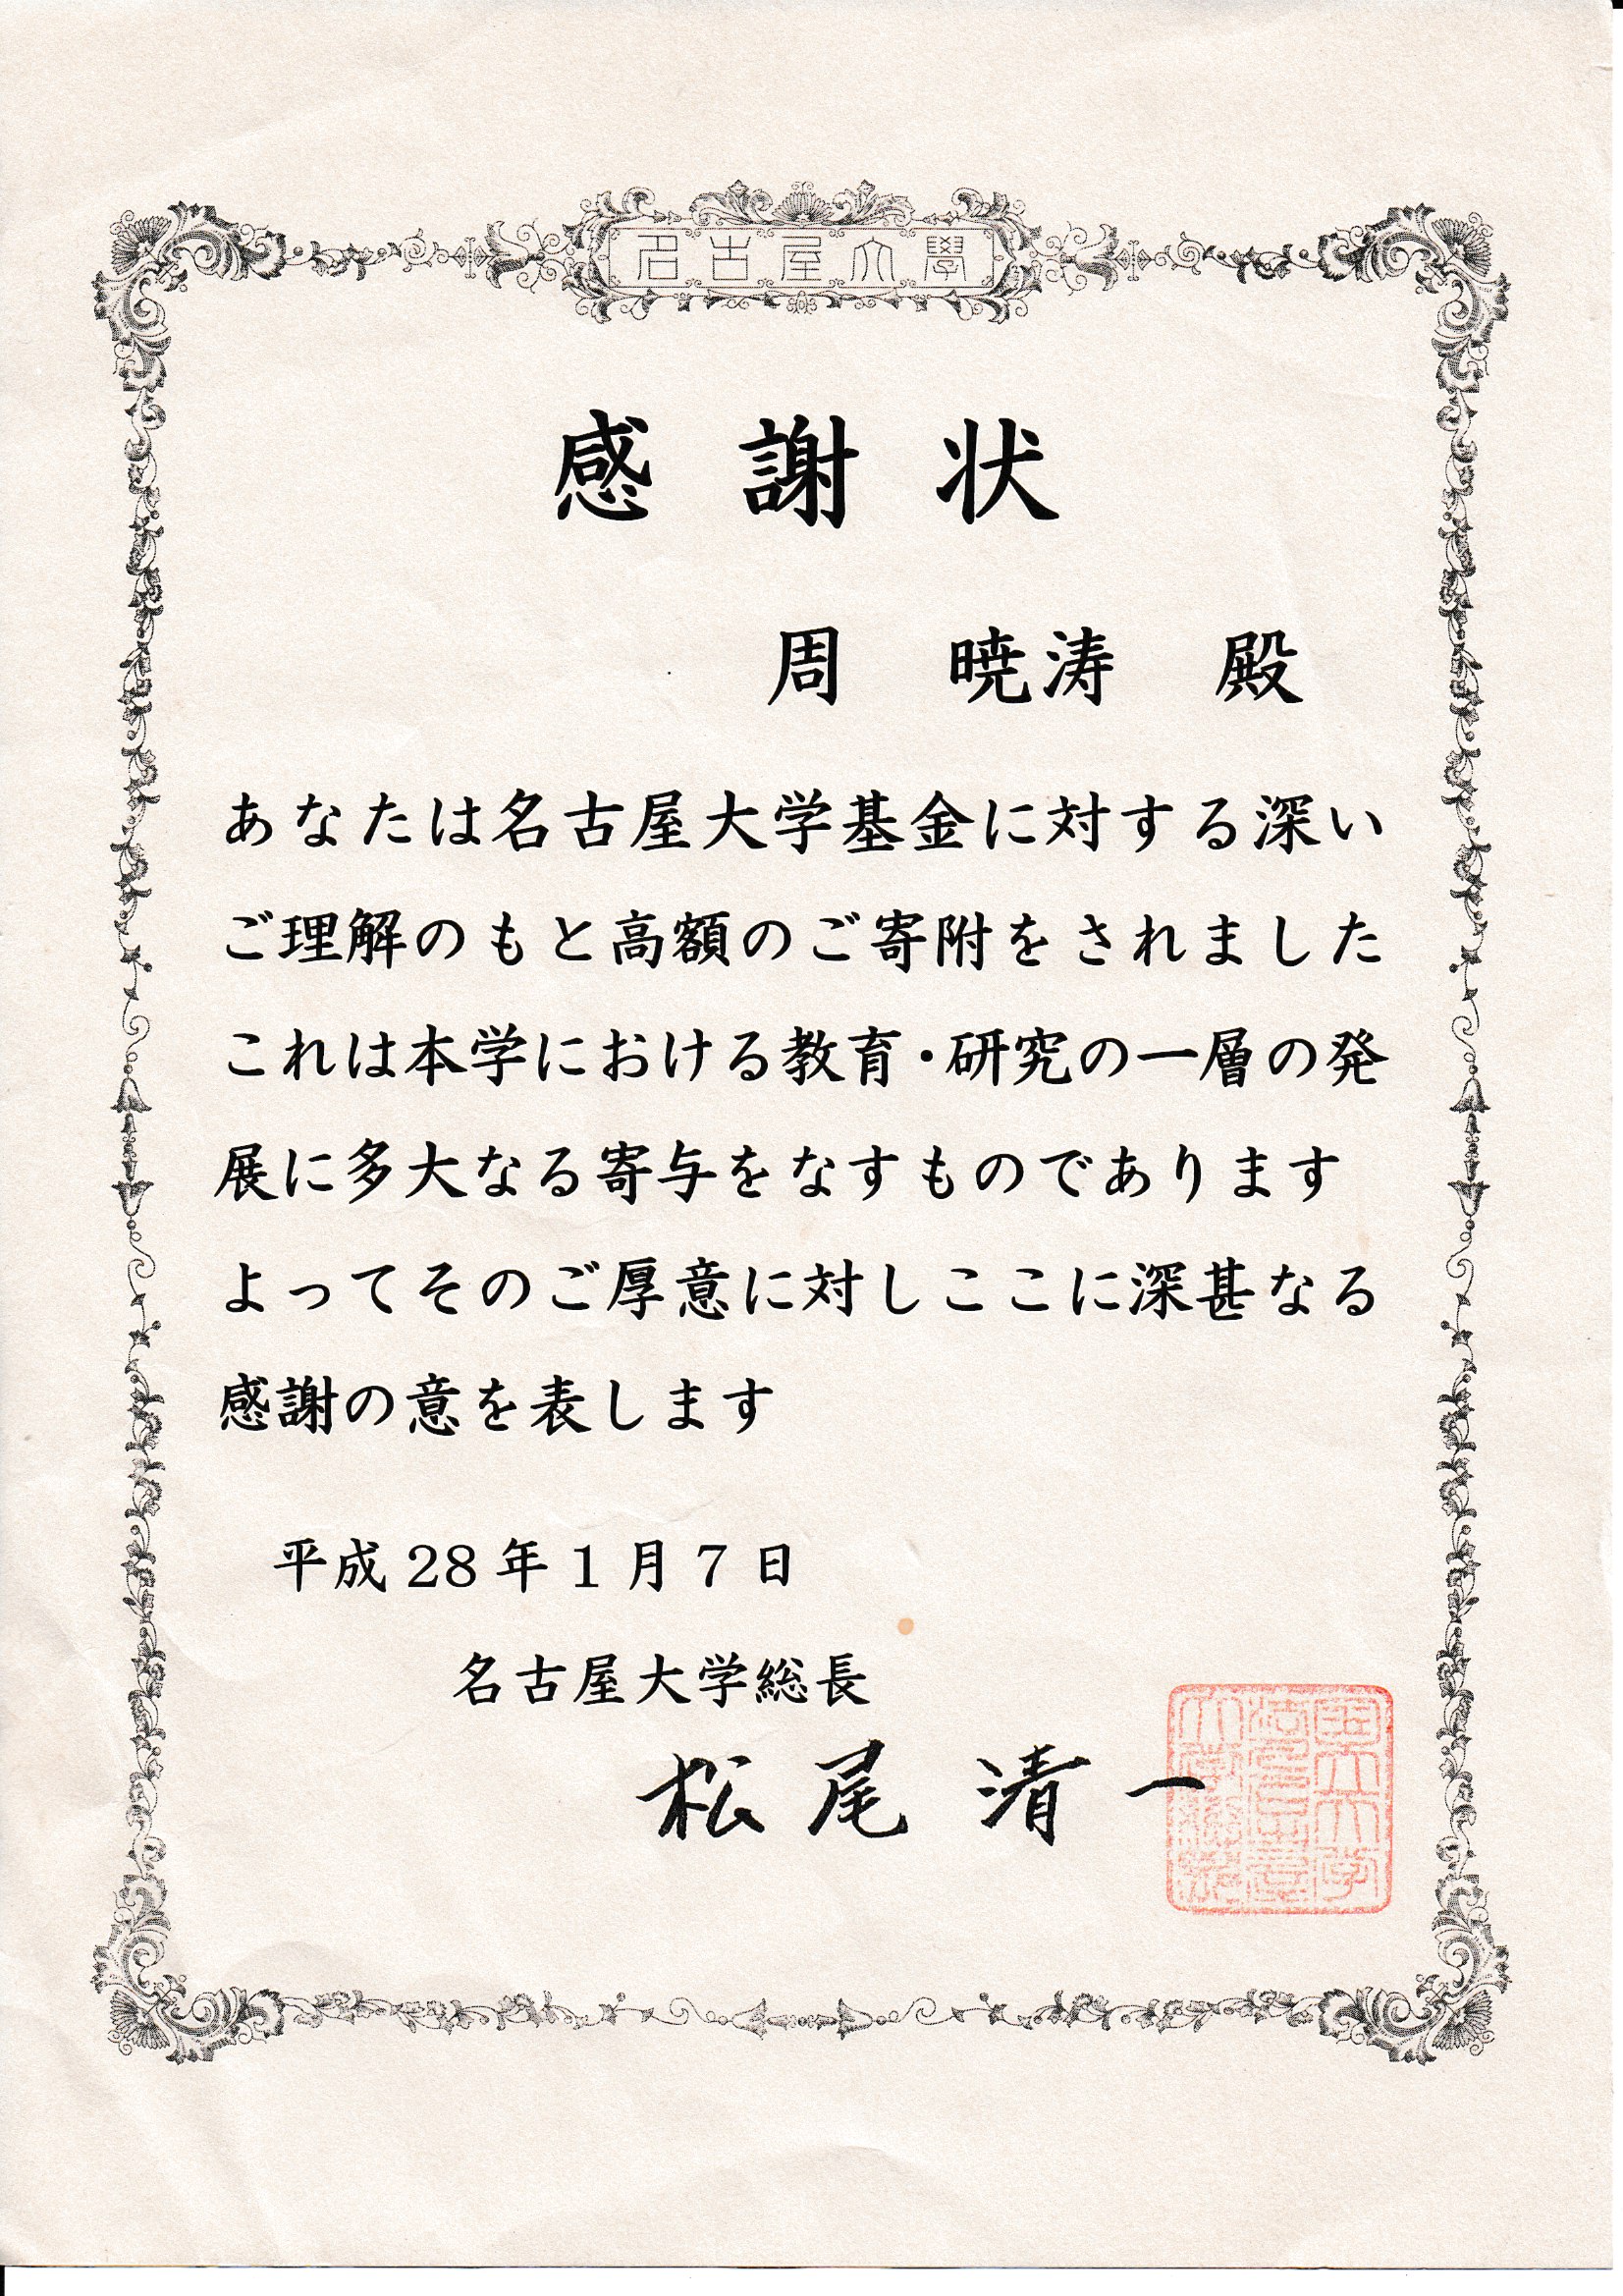 名古屋大學
感謝状
周 暁涛 殿
あなたは名古屋大学基金に対する深い
ご理解のもと高額のご寄附をされました
これは本学における教育・研究の一層の発
展に多大なる寄与をなすものであります
よってそのご厚意に対しここに深甚なる
感謝の意を表します
平成28年1月7日
名古屋大学総長
松尾清一